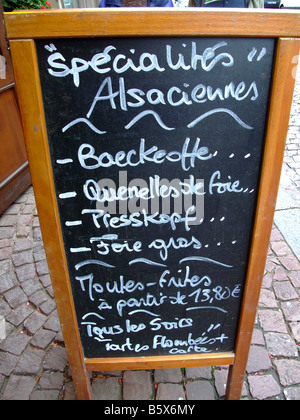 "Spécialités"
Alsaciennes
- Baeckeoffe...
- Quenelles de foie...
- Presskopf...
- Foie gras...
Moules-frites
à partir de 13,80€
"Tous les soirs"
Tartes Flambées +
carte